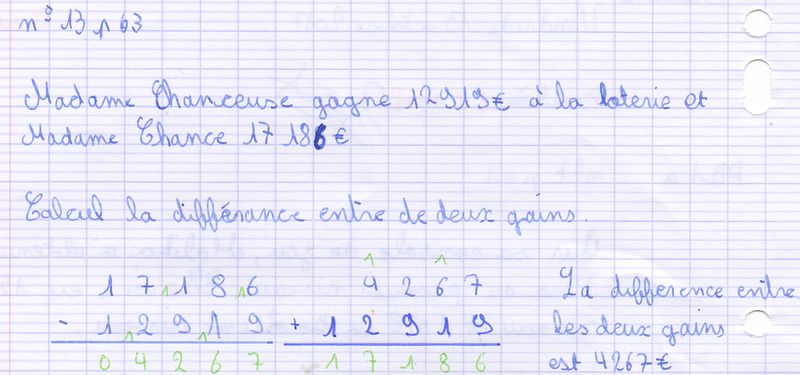 n° 13 p 63
Madame Chanceuse gagne 12919€ à la loterie et
Madame Chance 17 186€
Calcul la différance entre de deux gains.
1 7 11 8 16
- 1 12 9 11 9
0 4 2 6 7
1 1
4 2 6 7
+ 1 2 9 1 9
1 7 1 8 6
La difference entre
les deux gains
est 4267€